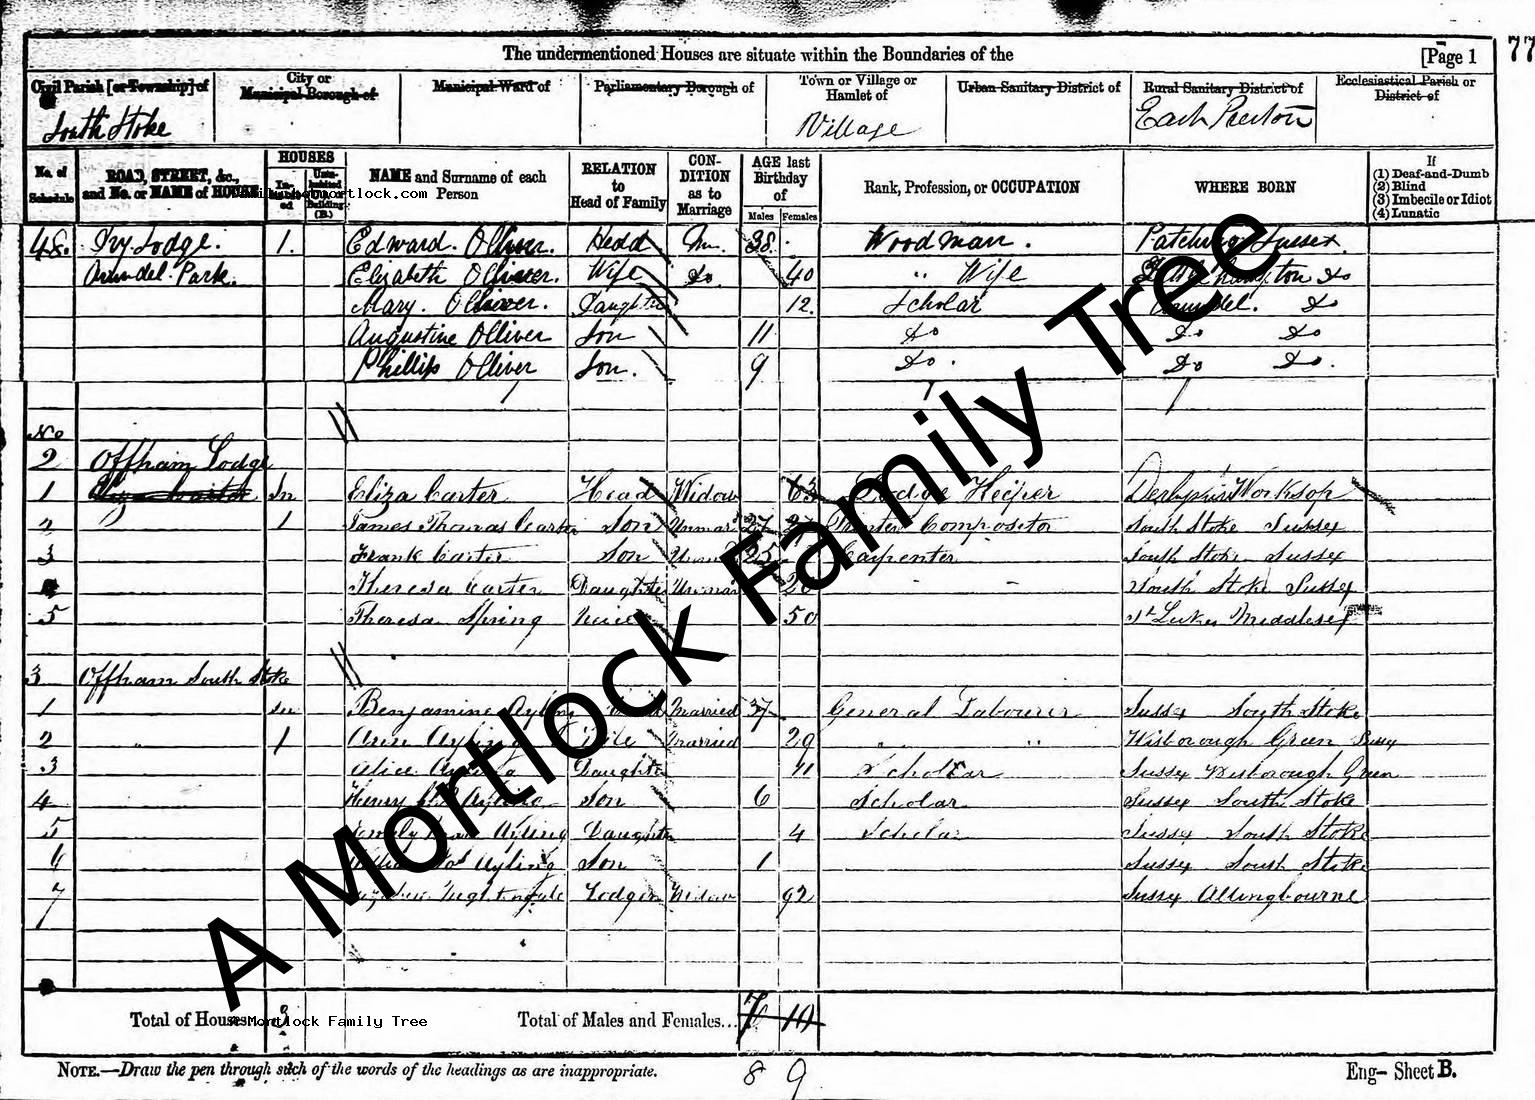 The undermentioned Houses are situate within the Boundaries of the
[Page 1
77
Civil Parish [or Township] of
City or Municipal Borough of
Municipal Ward of
Parliamentary Borough of
Town or Village or Hamlet of
Urban Sanitary District of
Rural Sanitary District of
Ecclesiastical Parish or District of
South Stoke
Village
East Preston
No. of Schedule
ROAD, STREET, &c., and No. or NAME of HOUSE
HOUSES
NAME and Surname of each Person
RELATION to Head of Family
CON-DITION as to Marriage
AGE last Birthday of
Males
Females
Rank, Profession, or OCCUPATION
WHERE BORN
If
(1) Deaf-and-Dumb
(2) Blind
(3) Imbecile or Idiot
(4) Lunatic
48. Ivy Lodge. 1. Edward. Olliver. Head M. 38. Woodman. Patching Sussex.
Arundel Park. Elizabeth Olliver. Wife Do. 40 " Wife Do
Mary. Olliver. Daughter 12. Scholar Arundel. Do
Augustine Olliver Son 11 Do Do Do
Phillip Olliver Son. 9 Do. Do Do.
No
2 Offham Lodge
1 In Eliza Carter Head Widow 63 Lodge Keeper Worksop
2 1 James Thomas Carter Son Unmar 27 27 Printer Compositor South Stoke Sussex
3 Frank Carter Son 25 Carpenter South Stoke Sussex
Theresa Carter Daughter Unmar South Stoke Sussex
5 Theresa Spring Neice 50 St Lukes Middlesex
3 Offham South Stoke
1 In Benjamine Ayling Married 37 General Labourer Sussex South Stoke
2 " 1 Ann Ayling Wife Married 29 " " Wisborough Green Sussex
3 Alice Ayling Daughter 11 Scholar Sussex Wisborough Green
4 Henry Ayling Son 6 Scholar Sussex South Stoke
5 Ayling Daughter 4 Scholar Sussex South Stoke
6 Ayling Son 1 Sussex South Stoke
7 Nightingale Lodger Widow 92 Sussex
Total of Houses
Total of Males and Females...
7 10
8 9
NOTE.—Draw the pen through such of the words of the headings as are inappropriate.
Eng— Sheet B.
A Mortlock Family Tree
A Mortlock Family Tree